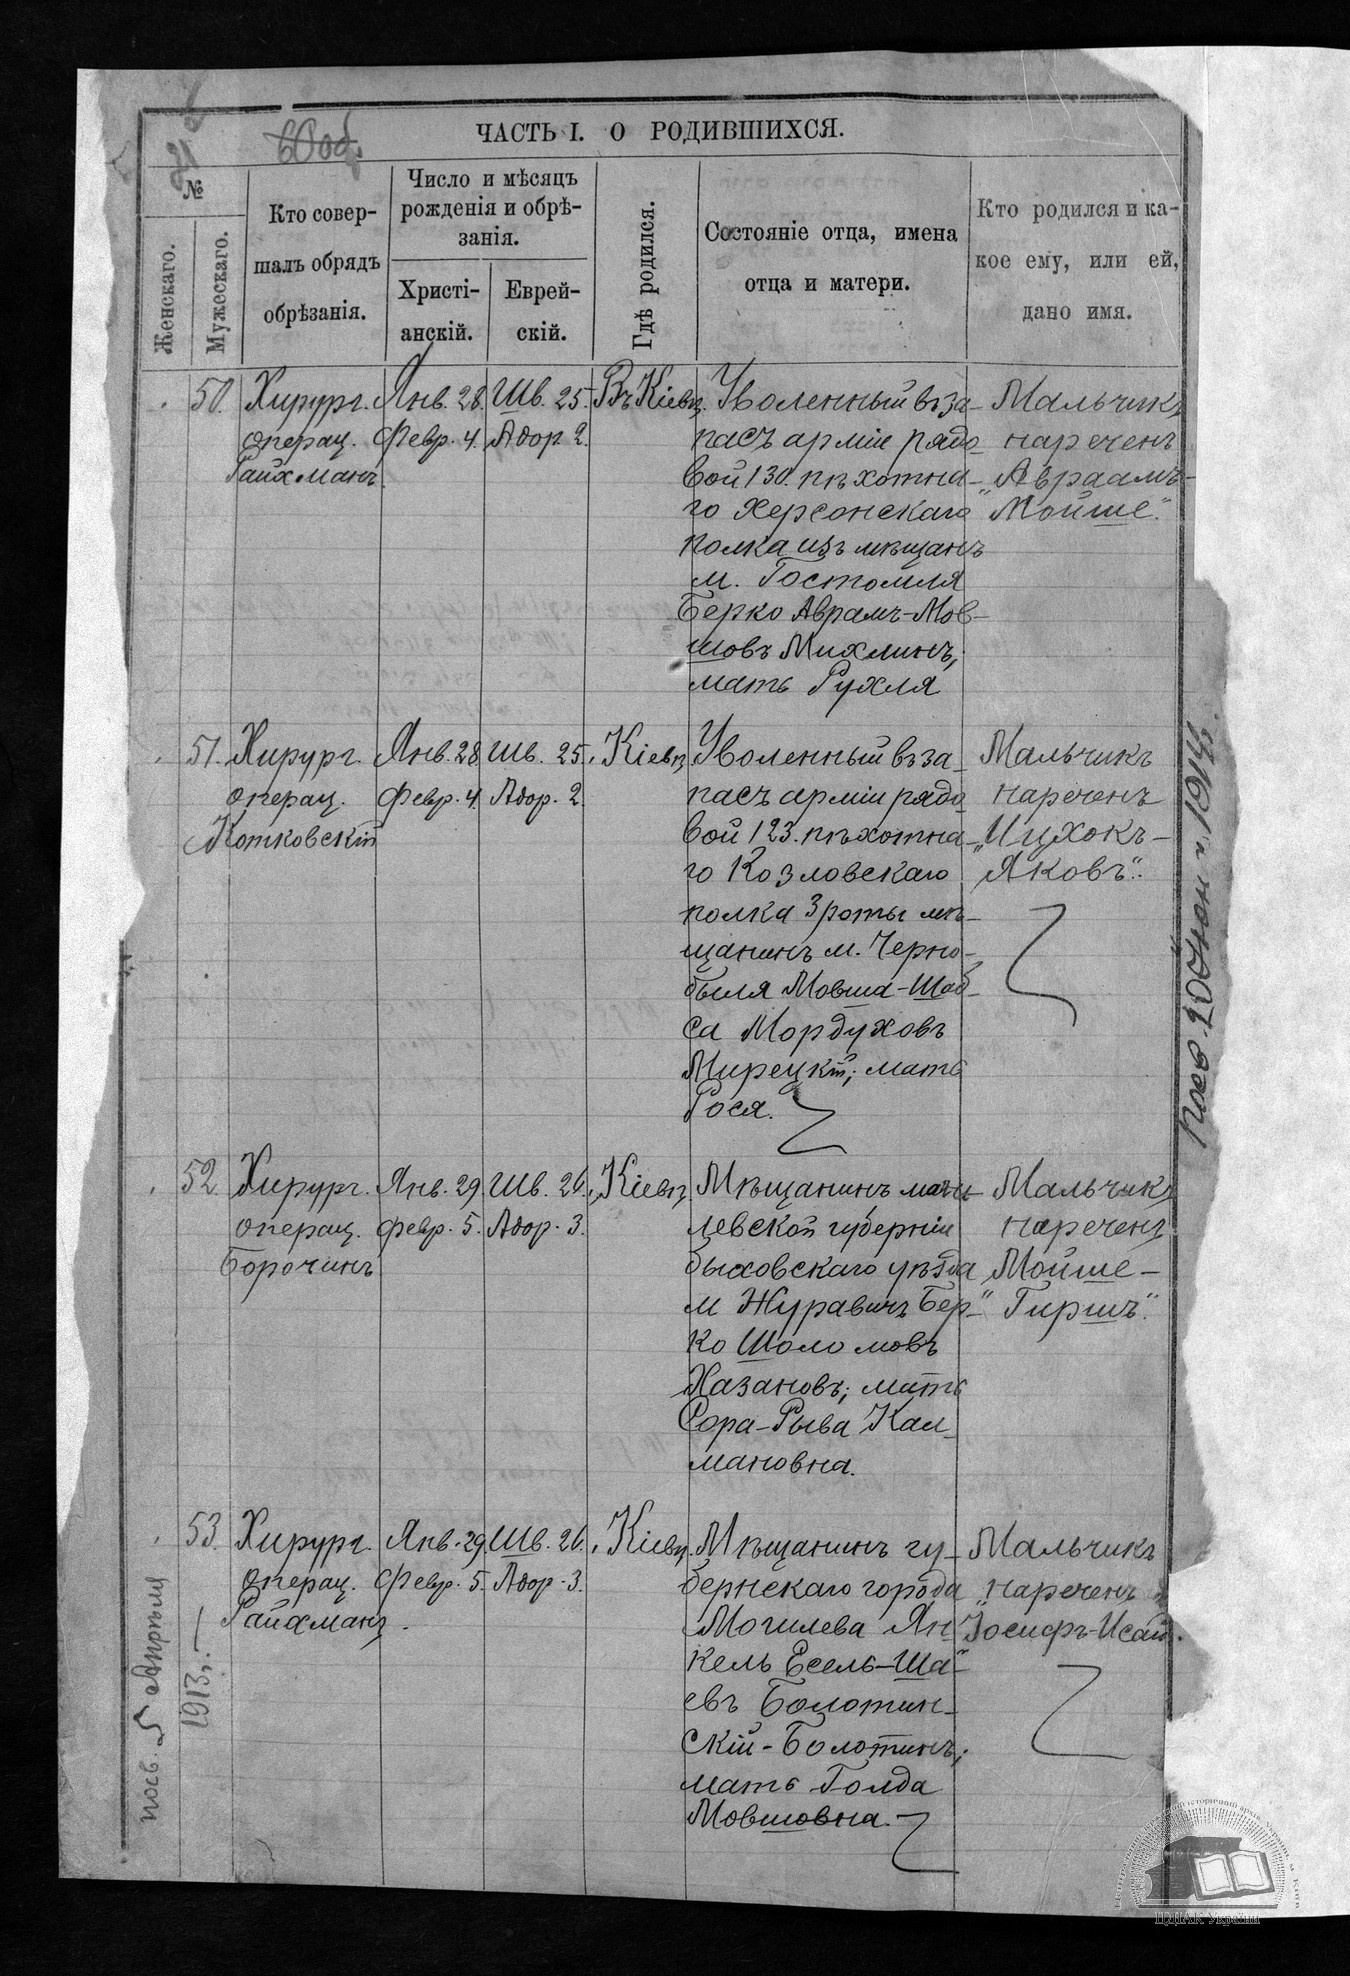 ЧАСТЬ I. О РОДИВШИХСЯ.
№
Женскаго.
Мужескаго.
Кто совер-
шалъ обрядъ
обрѣзанія.
Число и мѣсяцъ
рожденія и обрѣ-
занія.
Христі-
анскій.
Еврей-
скій.
Гдѣ родился.
Состояніе отца, имена
отца и матери.
Кто родился и ка-
кое ему, или ей,
дано имя.
50.
Хирург.
операц.
Райхманъ.
Янв. 28.
Февр. 4.
Шв. 25.
Адор 2.
Въ Кіевѣ.
Уволенный въ за-
пасъ арміи рядо-
вой 130. пѣхотна-
го Херсонскаго
полка изъ мѣщанъ
м. Гостомля
Берко Аврамъ-Мов-
шовъ Михлинъ,
мать Рухля
Мальчикъ
нареченъ
„Авраамъ-
Мойше."
51.
Хирург.
операц.
Котковскій
Янв. 28
Февр. 4.
Шв. 25.
Адор. 2.
„Кіевѣ
Уволенный въ за-
пасъ арміи рядо-
вой 123. пѣхотна-
го Козловскаго
полка 3 роты мѣ-
щанинъ м. Черно-
быля Мовша-Шаб-
са Мордуховъ
Мирецкій; мать
Рося.
Мальчикъ
нареченъ
„Ицхокъ-
Яковъ".
52
Хирург.
операц.
Борочинъ
Янв. 29
февр. 5.
Шв. 26.
Адор. 3.
„Кіевѣ
Мѣщанинъ моги-
левской губерніи
быховскаго уѣзда
м Журавичъ Бер-
ко Шоломовъ
Хазановъ; мать
Сора-Рыва Кал-
мановна.
Мальчикъ
нареченъ
„Мойше-
Гиршъ".
53.
Хирург.
операц.
Райхманъ.
Янв. 29
Февр. 5.
Шв. 26.
Адор. 3.
„Кіевѣ.
Мѣщанинъ гу-
бернскаго города
Могилева Ян-
кель Есель-Ша-
евъ Болотин-
скій-Болотинъ;
мать Голда
Мовшовна.
Мальчикъ
нареченъ
„Іосифъ-Исай".
посв. 5 Апрѣля
1913
1914
ЦДІАК України